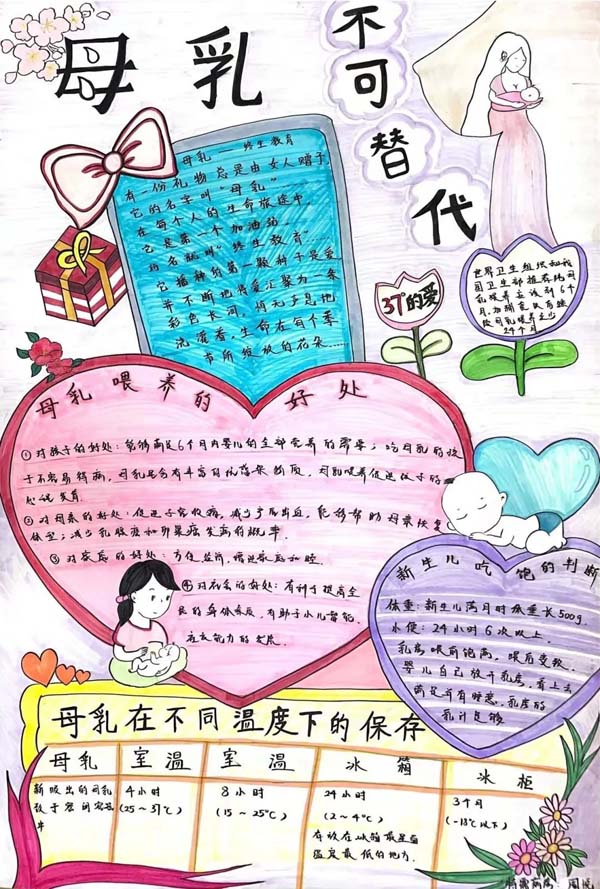 母乳
不可替代
母乳——终生教育
有一份礼物总是由女人赠予
它的名字叫“母乳”
在每个人的生命旅途中，
它是第一个加油站，
乃名就叫“终生教育”……
它播种的第一颗种子是爱
并不断地将爱汇聚为一条
彩色长河，悄无声息地
流淌着，生命在每个季
节所绽放的花朵……
37°的爱
世界卫生组织和我
国卫生部推荐纯母
乳喂养应该到6个
月，加辅食后再继
续母乳喂养至少
24个月
母乳喂养的好处
①对孩子的好处：能够满足6个月内婴儿的全部营养的需要；吃母乳的孩
子不容易得病，母乳里含有丰富的抗感染物质，母乳喂养促进孩子的
发育.
②对母亲的好处：促进子宫收缩，减少产后出血，能够帮助母亲恢复
体型；减少乳腺癌和卵巢癌发病的概率.
③对家庭的好处：方便经济，增进家庭和睦.
④对社会的好处：有利于提高全
民的身体素质，有助于小儿智能、
社交能力的发展.
新生儿吃饱的判断
体重：新生儿满月时体重长500g.
小便：24小时6次以上.
乳房喂前饱满，喂后变软.
婴儿自己放开乳房，看上去
满足并有睡意，乳房的
乳汁足够
母乳在不同温度下的保存
母乳 室温 室温 冰箱 冰柜
新吸出的母乳 4小时 8小时 24小时 3个月
放于密闭容器 (25~37℃) (15~25℃) (2~4℃) (-18℃以下)
中 存放在冰箱最里面
温度最低的地方.